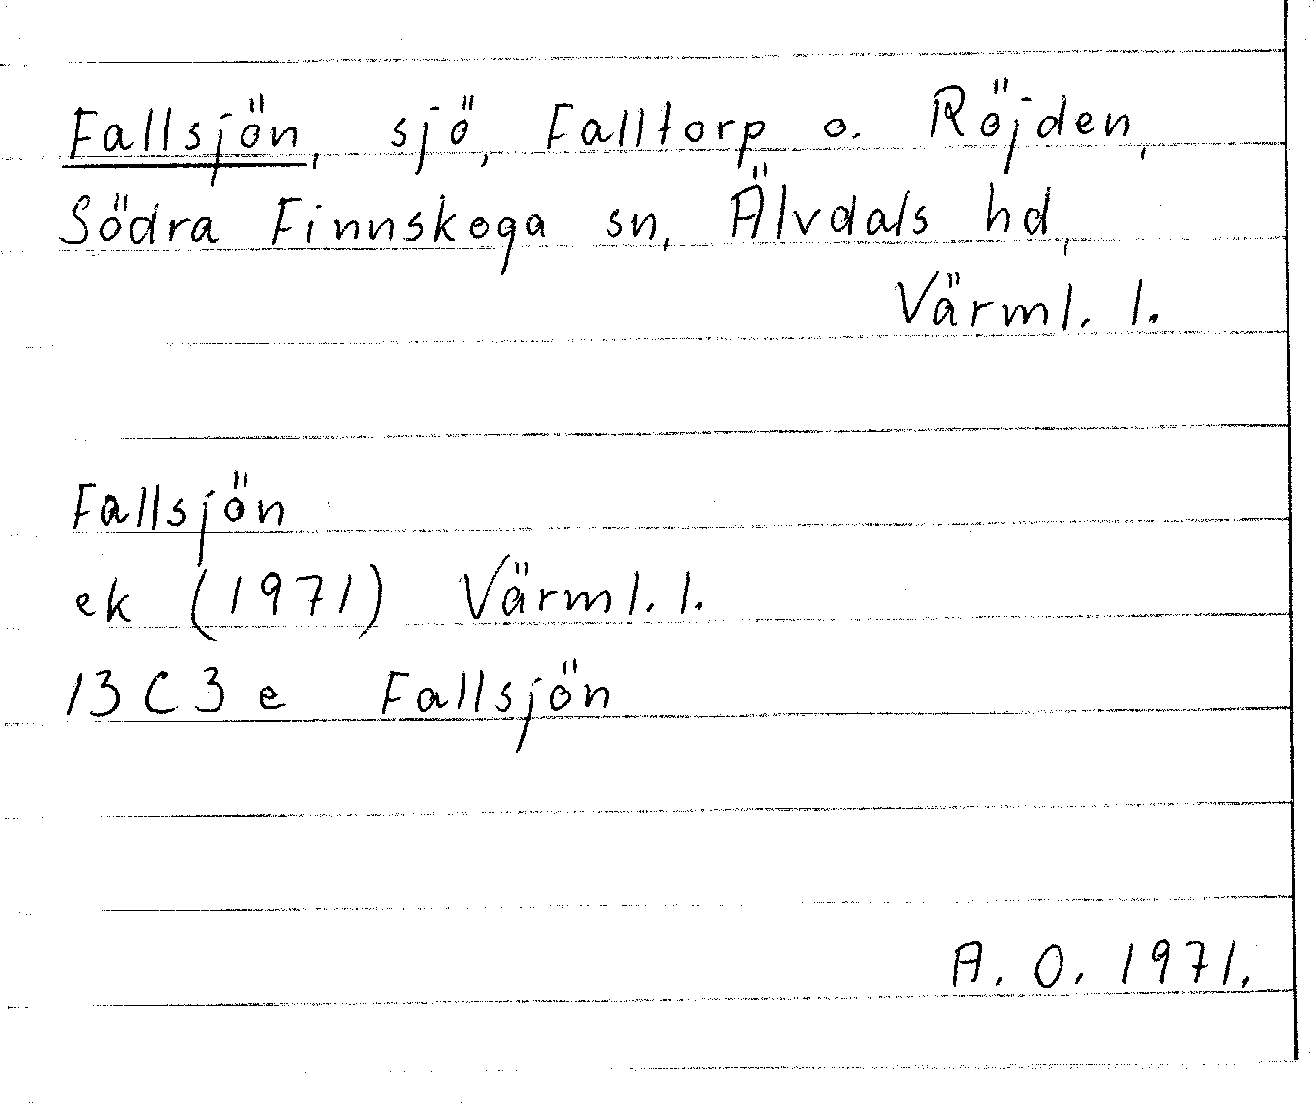 Fallsjön, sjö, Falltorp o. Röjden,
Södra Finnskoga sn, Älvdals hd,
Värml. l.
Fallsjön
ek (1971) Värml. l.
13C3e Fallsjön
A. O. 1971.